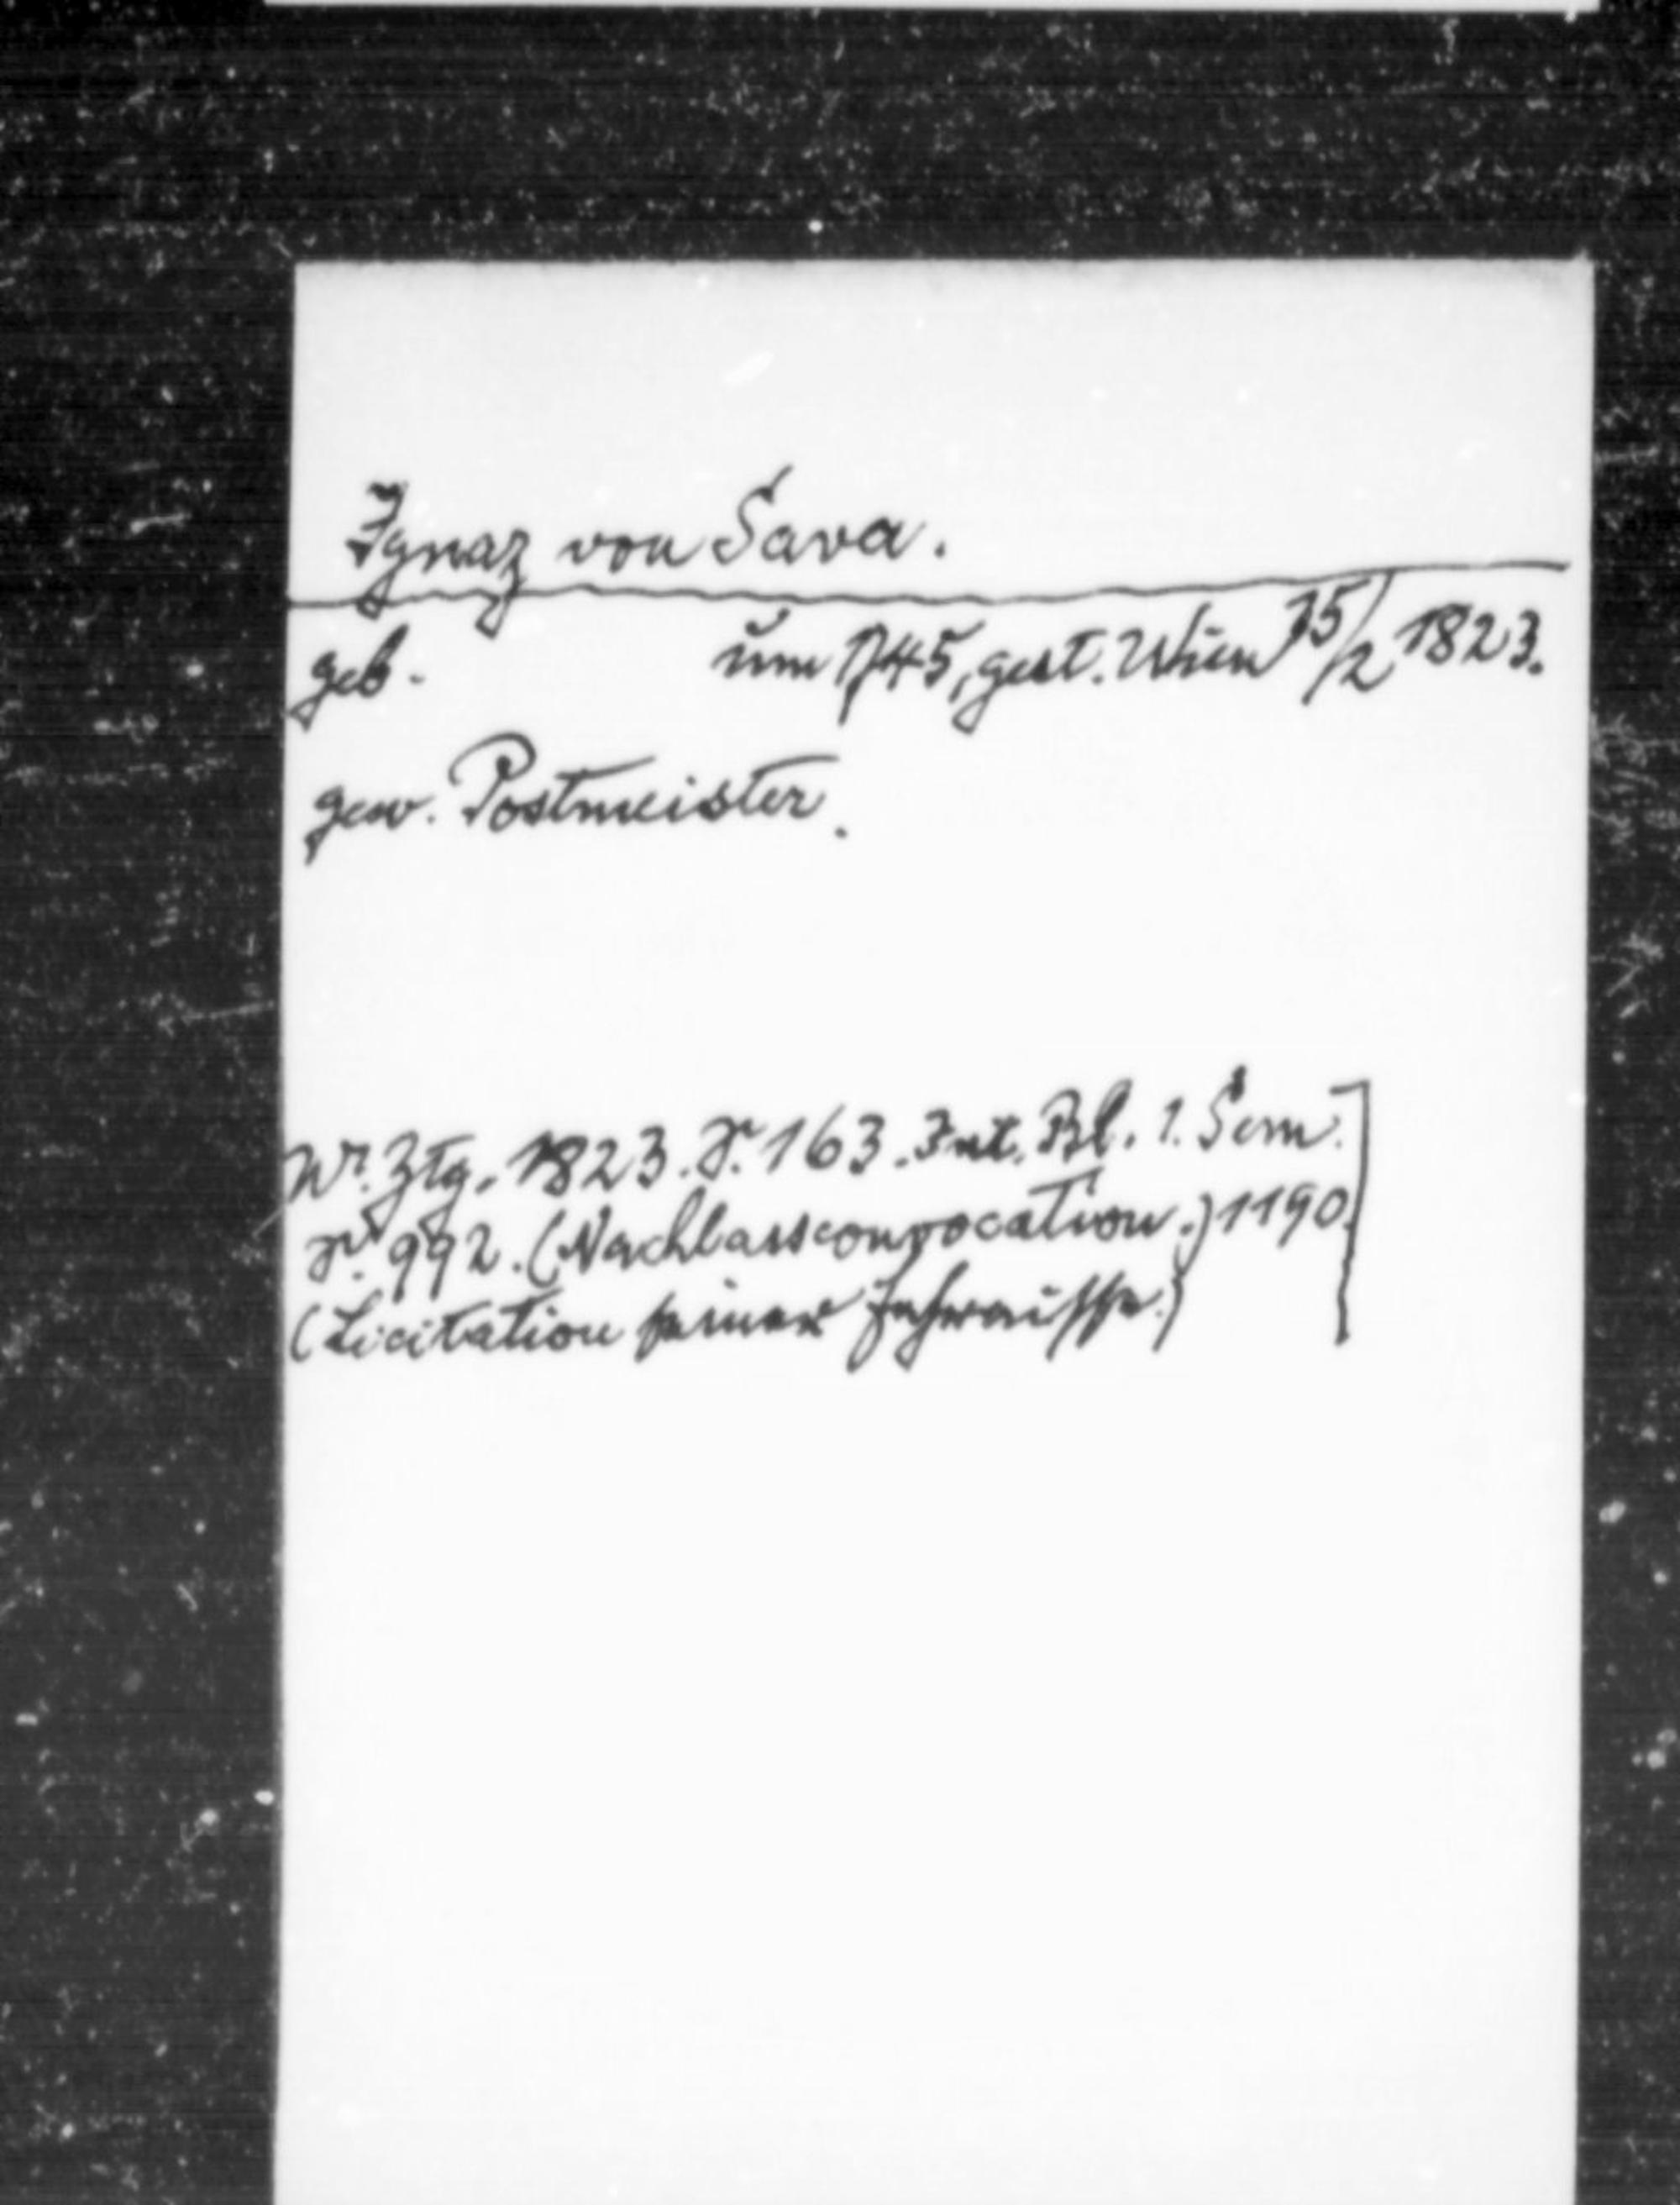 Ignaz von Sava.
geb. um 1745, gest. Wien 15/2 1823.
gew. Postmeister.
Wr. Ztg. 1823. S. 163. Int. Bl. 1. Sem.
S. 992. (Nachlassconvocation.) 1190.
(Licitation seiner Fahrnisse.)